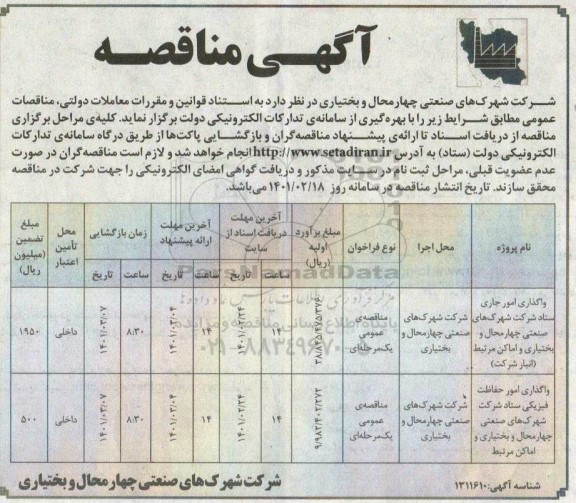 آگهی مناقصه
شرکت شهرک‌های صنعتی چهارمحال و بختیاری در نظر دارد به استناد قوانین و مقررات معاملات دولتی، مناقصات
عمومی مطابق شرایط زیر را با بهره‌گیری از سامانه‌ی تدارکات الکترونیکی دولت برگزار نماید. کلیه‌ی مراحل برگزاری
مناقصه از دریافت اسناد تا ارائه‌ی پیشنهاد مناقصه‌گران و بازگشایی پاکت‌ها از طریق درگاه سامانه‌ی تدارکات
الکترونیکی دولت (ستاد) به آدرس http://www.setadiran.ir انجام خواهد شد و لازم است مناقصه‌گران در صورت
عدم عضویت قبلی، مراحل ثبت نام در سایت مذکور و دریافت گواهی امضای الکترونیکی را جهت شرکت در مناقصه
محقق سازند. تاریخ انتشار مناقصه در سامانه روز ۱۴۰۱/۰۲/۱۸ می‌باشد.
نام پروژه
محل اجرا
نوع فراخوان
مبلغ برآورد اولیه (ریال)
آخرین مهلت دریافت اسناد از سایت
آخرین مهلت ارائه پیشنهاد
زمان بازگشایی
محل تأمین اعتبار
مبلغ تضمین (میلیون ریال)
ساعت تاریخ ساعت تاریخ ساعت تاریخ
واگذاری امور جاری
ستاد شرکت شهرک‌های
صنعتی چهارمحال و
بختیاری و اماکن مرتبط
(انبار شرکت)
شرکت شهرک‌های
صنعتی چهارمحال و
بختیاری
مناقصه‌ی
عمومی
یک‌مرحله‌ای
۳۸/۸۲۵/۴۷۵/۳۷۶
۱۴
۱۴۰۱/۰۲/۲۴
۱۴
۱۴۰۱/۰۳/۰۴
۸:۳۰
۱۴۰۱/۰۳/۰۷
داخلی
۱۹۵۰
واگذاری امور حفاظت
فیزیکی ستاد شرکت
شهرک‌های صنعتی
چهارمحال و بختیاری و
اماکن مرتبط
شرکت شهرک‌های
صنعتی چهارمحال و
بختیاری
مناقصه‌ی
عمومی
یک‌مرحله‌ای
۹/۹۸۲/۴۰۲/۲۷۲
۱۴
۱۴۰۱/۰۲/۲۴
۱۴
۱۴۰۱/۰۳/۰۴
۸:۳۰
۱۴۰۱/۰۳/۰۷
داخلی
۵۰۰
ParsNamadData
پایگاه اطلاع رسانی مناقصه و مزایده
۰۲۱-۸۸۳۴۹۶۷۰
شناسه آگهی: ۱۳۱۱۶۱۰
شرکت شهرک‌های صنعتی چهارمحال و بختیاری